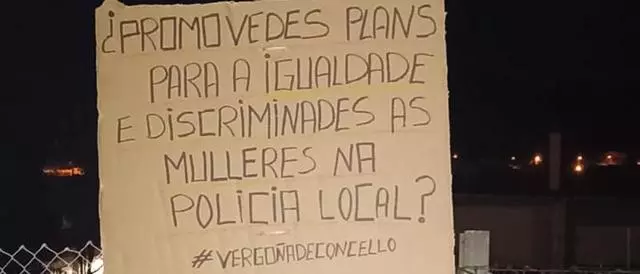 ¿PROMOVEDES PLANS
PARA A IGUALDADE
E DISCRIMINADES AS
MULLERES NA
POLICIA LOCAL?
#VERGOÑADECONCELLO